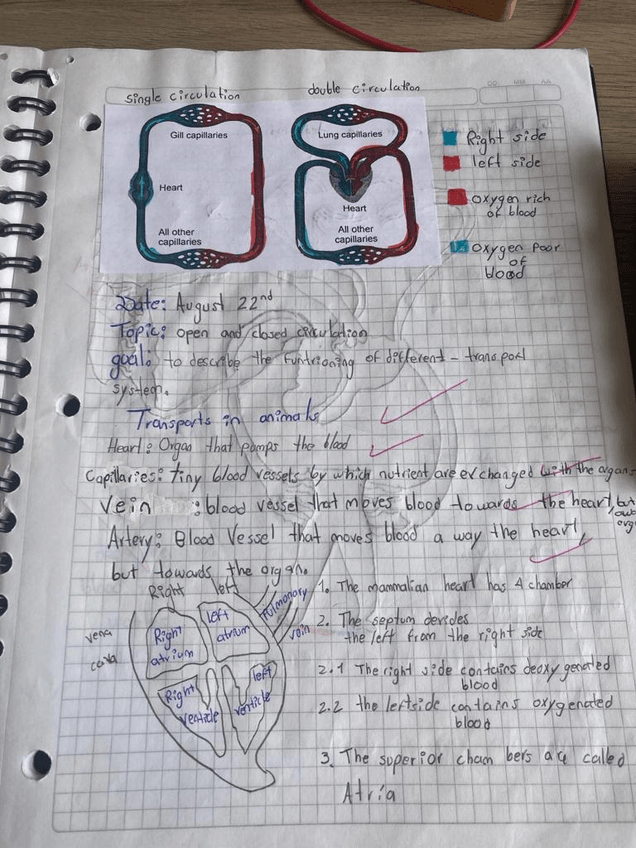 single circulation
double circulation
DD MM AA
Gill capillaries
Heart
All other
capillaries
Lung capillaries
Heart
All other
capillaries
Right side
left side
oxygen rich
of blood
oxygen poor
of
blood
Date: August 22nd
Topic: open and closed circulation
goal: to describe the funtrioning of different - transport
system.
Transports in animals
Heart: Organ that pumps the blood
Capillaries: tiny blood vessels by which nutrient are exchanged with the organs
Vein : blood vessel that moves blood towards the heart, but
Artery: Blood Vessel that moves blood a way the heart,
but towards the organ.
Right
left
Pulmonary
vein
vena
cava
Right
atrium
left
atrium
Right
ventricle
left
ventricle
1. The mammalian heart has 4 chamber
2. The septum devides
the left from the right side
2.1 The right side contains deoxy genated
blood
2.2 the leftside contains oxygenated
blood
3. The superior cham bers are called
Atria